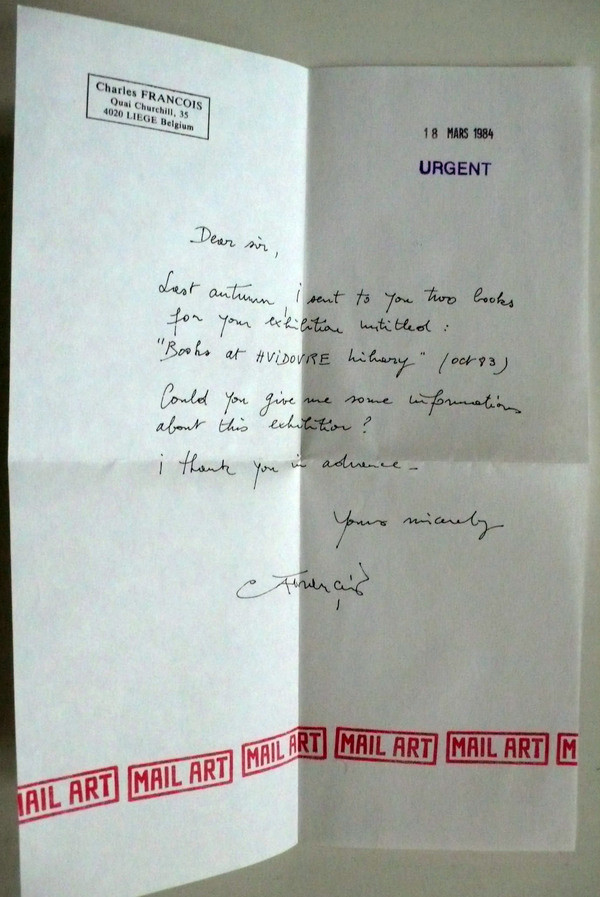 Charles FRANCOIS
Quai Churchill, 35
4020 LIEGE Belgium
18 MARS 1984
URGENT
Dear sir,
Last autumn, i sent to you two books
for your exhibition untitled :
"Books at HVIDOVRE library" (oct 83)
Could you give me some informations
about this exhibition ?
i thank you in advance -
Yours sincerely
C François
MAIL ART MAIL ART MAIL ART MAIL ART MAIL ART M